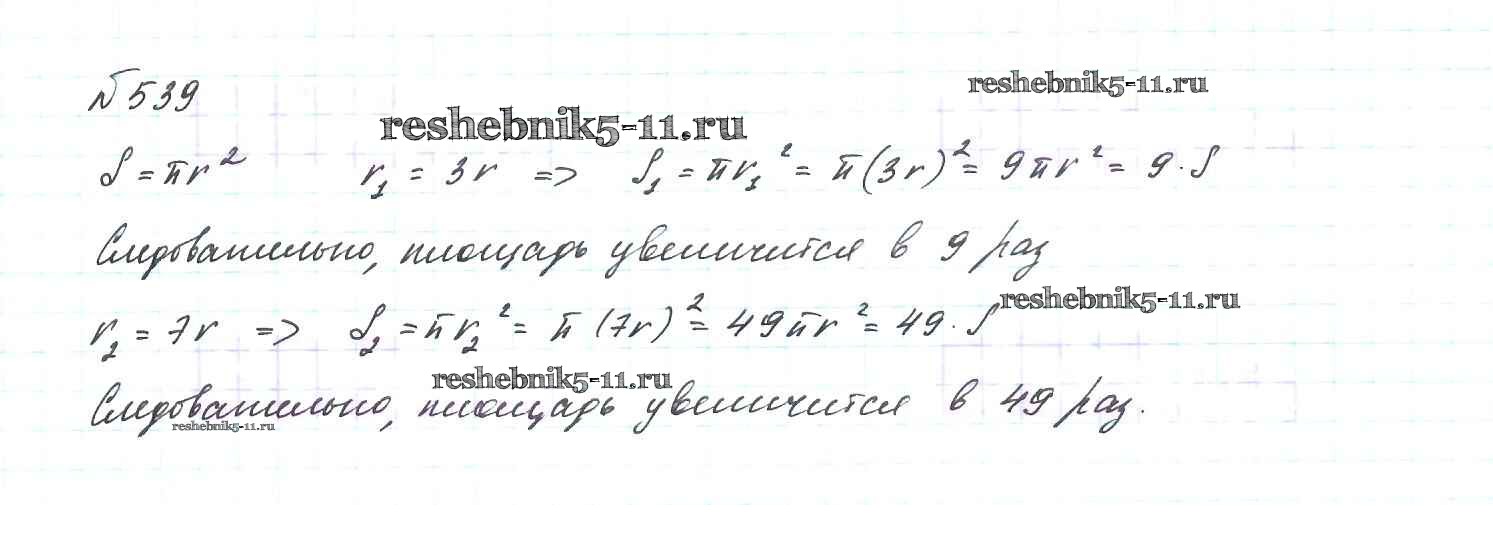 №539
reshebnik5-11.ru
reshebnik5-11.ru
S = πr² r₁ = 3r => S₁ = πr₁² = π(3r)² = 9πr² = 9·S
Следовательно, площадь увеличится в 9 раз
reshebnik5-11.ru
r₂ = 7r => S₂ = πr₂² = π(7r)² = 49πr² = 49·S
reshebnik5-11.ru
Следовательно, площадь увеличится в 49 раз.
reshebnik5-11.ru